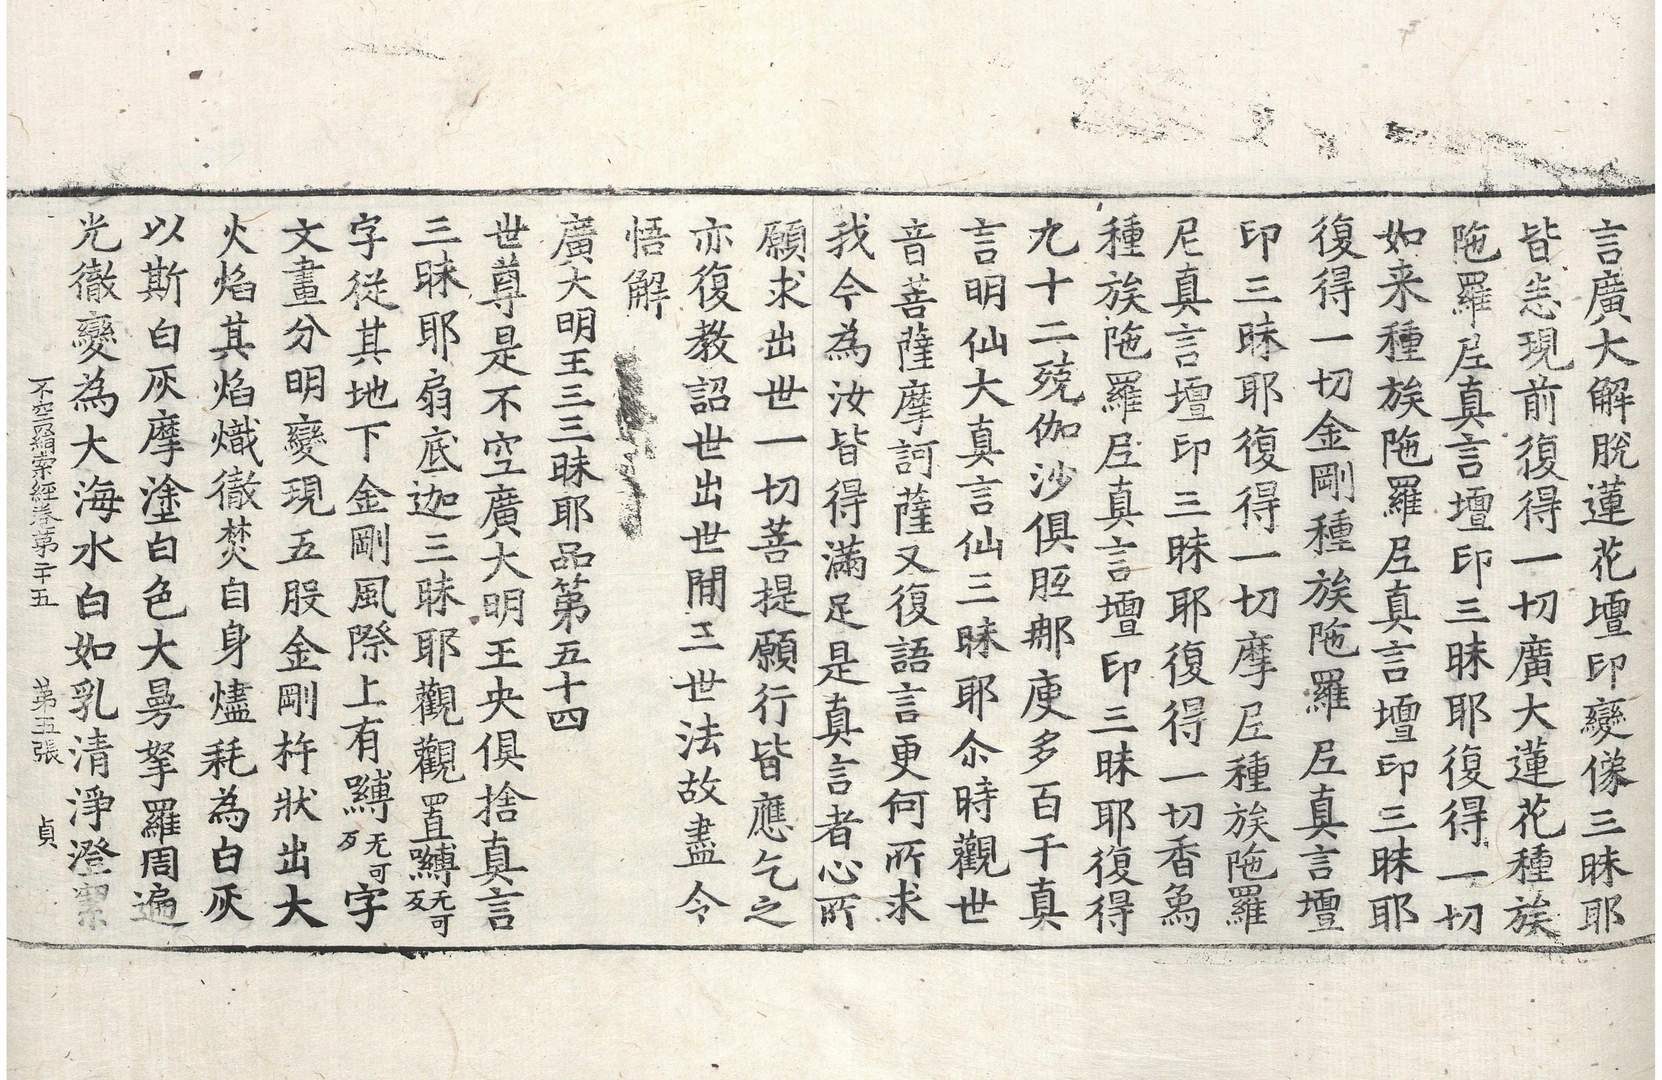 言廣大解脫蓮花壇印變像三昧耶
皆悉現前復得一切廣大蓮花種族
陁羅𡰱真言壇印三昧耶復得一切
如来種族陁羅𡰱真言壇印三昧耶
復得一切金剛種族陁羅𡰱真言壇
印三昧耶復得一切摩𡰱種族陁羅
尼真言壇印三昧耶復得一切香象
種族陁羅𡰱真言壇印三昧耶復得
九十二殑伽沙俱胝那庾多百千真
言明仙大真言仙三昧耶尒時觀世
音菩薩摩訶薩又復語言更何所求
我今為汝皆得滿足是真言者心所
願求出世一切菩提願行皆應乞之
亦復教詔世出世間三世法故盡令
悟解
廣大明王三三昧耶品第五十四
世尊是不空廣大明王央俱捨真言
三昧耶扇底迦三昧耶觀觀置嚩无可反
字從其地下金剛風際上有嚩无可反字
文畫分明變現五股金剛杵狀出大
火焰其焰熾徹焚自身燼耗為白灰
以斯白灰摩塗白色大曼拏羅周遍
光徹變為大海水白如乳清淨澄潔
不空羂索經卷第二十五 第五張 貞